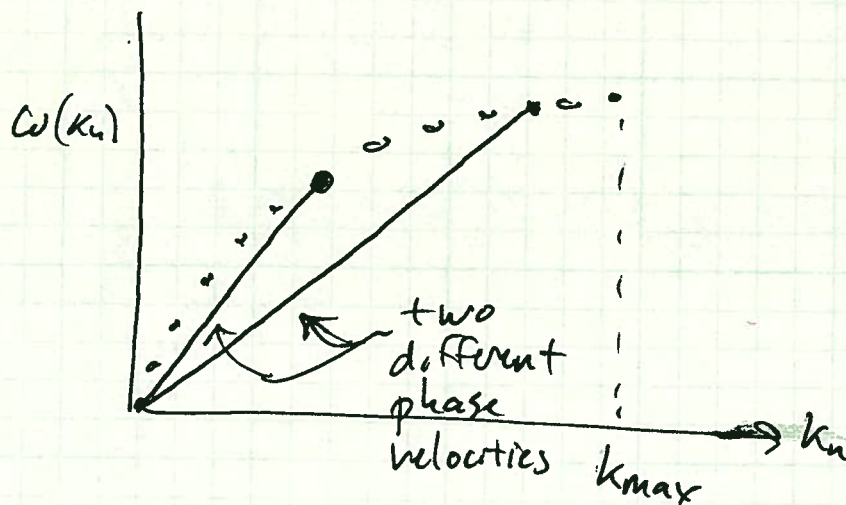 ω(kₙ)
two
different
phase
velocities
kₙ
kmax